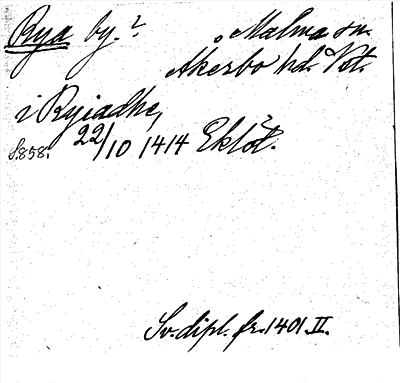 Rya by.? Malma sn.
Åkerbo hd. Vstm.
i Ryiadhe,
S.858. 22/10 1414 Eklöt.
Sv. dipl. fr. 1401. II.